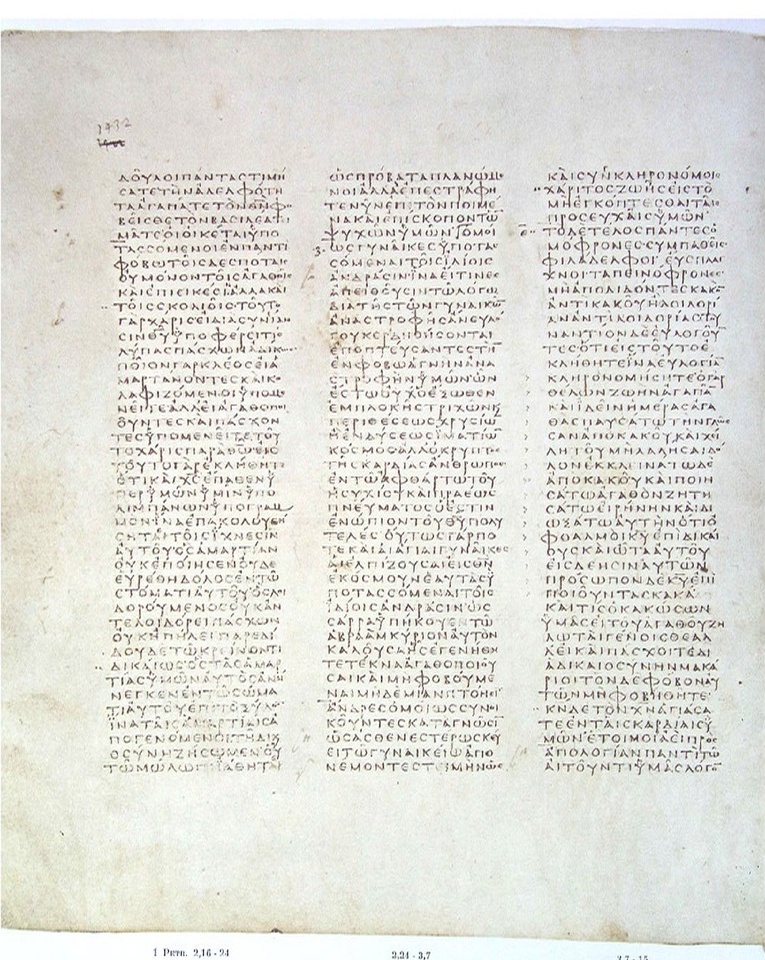 ΔΟΥΛΟΙΠΑΝΤΑϹΤΙΜΗ
ϹΑΤΕΤΗΝΑΔΕΛΦΟΤΗ
ΤΑΑΓΑΠΑΤΕΤΟΝΘΝΦΟ
ΒΕΙϹΘΕΤΟΝΒΑϹΙΛΕΑΤΙ
ΜΑΤΕΟΙΟΙΚΕΤΑΙΥΠΟ
ΤΑϹϹΟΜΕΝΟΙΕΝΠΑΝΤΙ
ΦΟΒΩΤΟΙϹΔΕϹΠΟΤΑΙϹ
ΟΥΜΟΝΟΝΤΟΙϹΑΓΑΘΟΙϹ
ΚΑΙΕΠΙΕΙΚΕϹΙΑΛΛΑΚΑΙ
ΤΟΙϹϹΚΟΛΙΟΙϹΤΟΥΤΟ
ΓΑΡΧΑΡΙϹΕΙΔΙΑϹΥΝΙΔΗ
ϹΙΝΘΥΥΠΟΦΕΡΕΙΤΙϹ
ΛΥΠΑϹΠΑϹΧΩΝΑΔΙΚΩϹ
ΠΟΙΟΝΓΑΡΚΛΕΟϹΕΙΑ
ΜΑΡΤΑΝΟΝΤΕϹΚΑΙΚΟ
ΛΑΦΙΖΟΜΕΝΟΙΥΠΟΜΕ
ΝΕΙΤΕΑΛΛΕΙΑΓΑΘΟΠΟΙ
ΟΥΝΤΕϹΚΑΙΠΑϹΧΟΝ
ΤΕϹΥΠΟΜΕΝΕΙΤΕΤΟΥ
ΤΟΧΑΡΙϹΠΑΡΑΘΩΕΙϹ
ΤΟΥΤΟΓΑΡΕΚΛΗΘΗΤΕ
ΟΤΙΚΑΙΧϹΕΠΑΘΕΝΥ
ΠΕΡΥΜΩΝΥΜΙΝΥΠΟ
ΛΙΜΠΑΝΩΝΥΠΟΓΡΑΜ
ΜΟΝΙΝΑΕΠΑΚΟΛΟΥΘΗ
ϹΗΤΑΙΤΟΙϹΙΧΝΕϹΙΝ
ΑΥΤΟΥΟϹΑΜΑΡΤΙΑΝ
ΟΥΚΕΠΟΙΗϹΕΝΟΥΔΕ
ΕΥΡΕΘΗΔΟΛΟϹΕΝΤΩ
ϹΤΟΜΑΤΙΑΥΤΟΥΟϹΛΟΙ
ΔΟΡΟΥΜΕΝΟϹΟΥΚΑΝ
ΤΕΛΟΙΔΟΡΕΙΠΑϹΧΩΝ
ΟΥΚΗΠΕΙΛΕΙΠΑΡΕΔΙ
ΔΟΥΔΕΤΩΚΡΕΙΝΟΝΤΙ
ΔΙΚΑΙΩϹΟϹΤΑϹΑΜΑΡ
ΤΙΑϹΥΜΩΝΑΥΤΟϹΑΝΗ
ΝΕΓΚΕΝΕΝΤΩϹΩΜΑ
ΤΙΑΥΤΟΥΕΠΙΤΟΞΥΛΟ
ΙΝΑΤΑΙϹΑΜΑΡΤΙΑΙϹΑ
ΠΟΓΕΝΟΜΕΝΟΙΤΗΔΙΚ
ΟϹΥΝΗΖΗϹΩΜΕΝΟΥ
ΤΩΜΩΛΩΠΙΙΑΘΗΤΑΙ
ΩϹΠΡΟΒΑΤΑΠΛΑΝΩΜΕ
ΝΟΙΑΛΛΑΕΠΕϹΤΡΑΦΗ
ΤΕΝΥΝΕΠΙΤΟΝΠΟΙΜΕ
ΝΑΚΑΙΕΠΙϹΚΟΠΟΝΤΩ
ΨΥΧΩΝΥΜΩΝΟΜΟΙ
ΩϹΓΥΝΑΙΚΕϹΥΠΟΤΑϹ
ϹΟΜΕΝΑΙΤΟΙϹΙΔΙΟΙϹ
ΑΝΔΡΑϹΙΝΙΝΑΕΙΤΙΝΕϹ
ΑΠΕΙΘΟΥϹΙΝΤΩΛΟΓΩ
ΔΙΑΤΗϹΤΩΝΓΥΝΑΙΚΩ
ΑΝΑϹΤΡΟΦΗϹΑΝΕΥΛΟ
ΓΟΥΚΕΡΔΗΘΗϹΟΝΤΑΙ
ΕΠΟΠΤΕΥϹΑΝΤΕϹΤΗ
ΕΝΦΟΒΩΑΓΝΗΝΑΝΑ
ϹΤΡΟΦΗΝΥΜΩΝΩΝ
ΕϹΤΩΟΥΧΟΕΞΩΘΕΝ
ΕΜΠΛΟΚΗϹΤΡΙΧΩΝΚ
ΠΕΡΙΘΕϹΕΩϹΧΡΥϹΙΩ
ΗΕΝΔΥϹΕΩϹΙΜΑΤΙΩ
ΚΟϹΜΟϹΑΛΛΟΚΡΥΠΤΟϹ
ΤΗϹΚΑΡΔΙΑϹΑΝΘΡΩΠΟϹ
ΕΝΤΩΑΦΘΑΡΤΩΤΟΥ
ΗϹΥΧΙΟΥΚΑΙΠΡΑΕΩϹ
ΠΝΕΥΜΑΤΟϹΟΕϹΤΙΝ
ΕΝΩΠΙΟΝΤΟΥΘΥΠΟΛΥ
ΤΕΛΕϹΟΥΤΩϹΓΑΡΠΟ
ΤΕΚΑΙΑΙΑΓΙΑΙΓΥΝΑΙΚΕϹ
ΑΙΕΛΠΙΖΟΥϹΑΙΕΙϹΘΝ
ΕΚΟϹΜΟΥΝΕΑΥΤΑϹΥ
ΠΟΤΑϹϹΟΜΕΝΑΙΤΟΙϹ
ΙΔΙΟΙϹΑΝΔΡΑϹΙΝΩϹ
ϹΑΡΡΑΥΠΗΚΟΥΕΝΤΩ
ΑΒΡΑΑΜΚΥΡΙΟΝΑΥΤΟΝ
ΚΑΛΟΥϹΑΗϹΕΓΕΝΗΘΗ
ΤΕΤΕΚΝΑΑΓΑΘΟΠΟΙΟΥ
ϹΑΙΚΑΙΜΗΦΟΒΟΥΜΕ
ΝΑΙΜΗΔΕΜΙΑΝΠΤΟΗϹΙ
ΑΝΔΡΕϹΟΜΟΙΩϹϹΥΝΟΙ
ΚΟΥΝΤΕϹΚΑΤΑΓΝΩϹΙ
ΩϹΑϹΘΕΝΕϹΤΕΡΩϹΚΕΥ
ΕΙΤΩΓΥΝΑΙΚΕΙΩΑΠΟ
ΝΕΜΟΝΤΕϹΤΕΙΜΗΝΩϹ
ΚΑΙϹΥΝΚΛΗΡΟΝΟΜΟΙϹ
ΧΑΡΙΤΟϹΖΩΗϹΕΙϹΤΟ
ΜΗΕΓΚΟΠΤΕϹΘΑΙΤΑΙϹ
ΠΡΟϹΕΥΧΑΙϹΥΜΩΝ
ΤΟΔΕΤΕΛΟϹΠΑΝΤΕϹΟ
ΜΟΦΡΟΝΕϹϹΥΜΠΑΘΕΙϹ
ΦΙΛΑΔΕΛΦΟΙΕΥϹΠΛΑ
ΧΝΟΙΤΑΠΕΙΝΟΦΡΟΝΕϹ
ΜΗΑΠΟΔΙΔΟΝΤΕϹΚΑΚΟ
ΑΝΤΙΚΑΚΟΥΗΛΟΙΔΟΡΙ
ΑΝΑΝΤΙΛΟΙΔΟΡΙΑϹΤΟΥ
ΝΑΝΤΙΟΝΔΕΕΥΛΟΓΟΥ
ΤΕϹΟΤΙΕΙϹΤΟΥΤΟΕ
ΚΛΗΘΗΤΕΙΝΑΕΥΛΟΓΙΑ
ΚΛΗΡΟΝΟΜΗϹΗΤΕΟΓΑΡ
ΘΕΛΩΝΖΩΗΝΑΓΑΠΑ
ΚΑΙΙΔΕΙΝΗΜΕΡΑϹΑΓΑ
ΘΑϹΠΑΥϹΑΤΩΤΗΝΓΛΩϹ
ϹΑΝΑΠΟΚΑΚΟΥΚΑΙΧΕΙ
ΛΗΤΟΥΜΗΛΑΛΗϹΑΙΔΟ
ΛΟΝΕΚΚΛΕΙΝΑΤΩΔΕ
ΑΠΟΚΑΚΟΥΚΑΙΠΟΙΗ
ϹΑΤΩΑΓΑΘΟΝΖΗΤΗ
ϹΑΤΩΕΙΡΗΝΗΝΚΑΙΔΙ
ΩΞΑΤΩΑΥΤΗΝΟΤΙΟ
ΦΘΑΛΜΟΙΚΥΕΠΙΔΙΚΑΙ
ΟΥϹΚΑΙΩΤΑΑΥΤΟΥ
ΕΙϹΔΕΗϹΙΝΑΥΤΩΝ
ΠΡΟϹΩΠΟΝΔΕΚΥΕΠΙ
ΠΟΙΟΥΝΤΑϹΚΑΚΑ
ΚΑΙΤΙϹΟΚΑΚΩϹΩΝ
ΥΜΑϹΕΙΤΟΥΑΓΑΘΟΥΖΗ
ΛΩΤΑΙΓΕΝΟΙϹΘΕΑΛ
ΛΕΙΚΑΙΠΑϹΧΟΙΤΕΔΙ
ΑΔΙΚΑΙΟϹΥΝΗΝΜΑΚΑ
ΡΙΟΙΤΟΝΔΕΦΟΒΟΝΑΥ
ΤΩΝΜΗΦΟΒΗΘΗΤΕ
ΚΝΔΕΤΟΝΧΝΑΓΙΑϹΑ
ΤΕΕΝΤΑΙϹΚΑΡΔΙΑΙϹΥ
ΜΩΝΕΤΟΙΜΟΙΑΕΙΠΡΟϹ
ΑΠΟΛΟΓΙΑΝΠΑΝΤΙΤΩ
ΑΙΤΟΥΝΤΙΥΜΑϹΛΟΓΟ
1432
1 Petr. 2,16 - 24
2,24 - 3,7
3,7 - 15